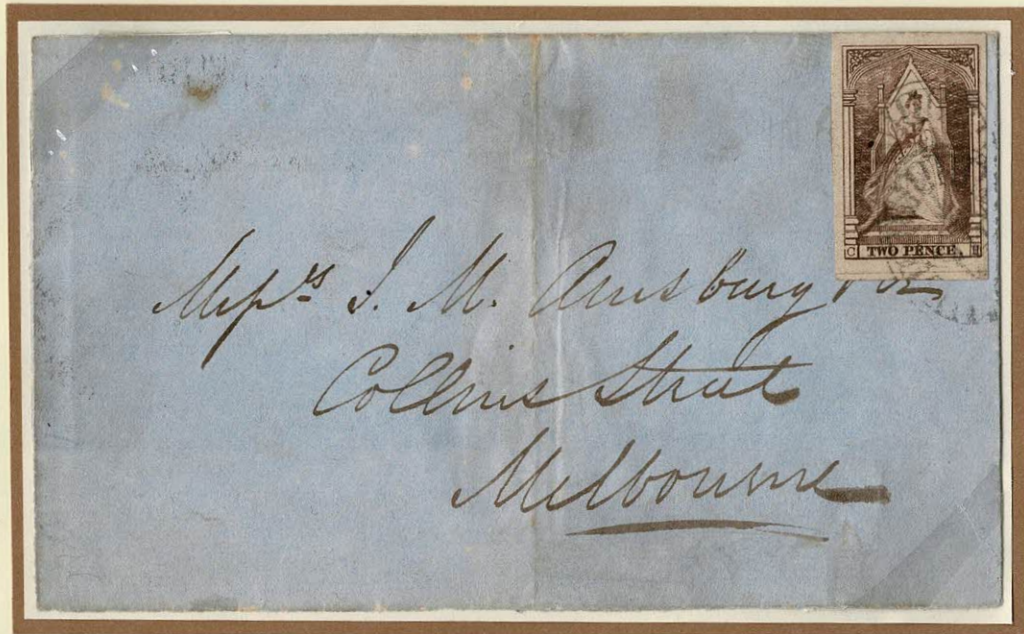 C TWO PENCE. H
Messrs J. M. Amsburg & Co
Collins Street
Melbourne